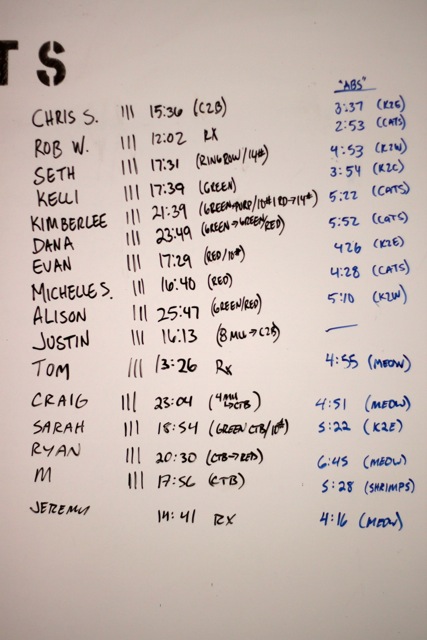 TS
"ABS"
CHRIS S. ||| 15:36 (C2B) 3:37 (K2E)
ROB W. ||| 12:02 RX 2:53 (CATS)
SETH ||| 17:31 (RING ROW/14#) 4:53 (K2W)
KELLI ||| 17:39 (GREEN) 3:54 (K2C)
KIMBERLEE ||| 21:39 (GREEN→PURP/10# 1RD→14#) 5:22 (CATS)
DANA ||| 23:49 (GREEN→GREEN/RED) 5:52 (CATS)
EVAN ||| 17:29 (RED/10#) 4:26 (K2E)
MICHELLE S. ||| 16:40 (RED) 4:28 (CATS)
ALISON ||| 25:47 (GREEN/RED) 5:10 (K2W)
JUSTIN ||| 16:13 (8 MU→C2B) —
TOM ||| 13:26 RX 4:55 (MEOW)
CRAIG ||| 23:04 (4 MU →CTB) 4:51 (MEOW)
SARAH ||| 18:54 (GREEN CTB/10#) 5:22 (K2E)
RYAN ||| 20:30 (CTB→RED) 6:45 (MEOW)
M ||| 17:56 (CTB) 5:28 (SHRIMPS)
JEREMY 14:41 RX 4:16 (MEOW)